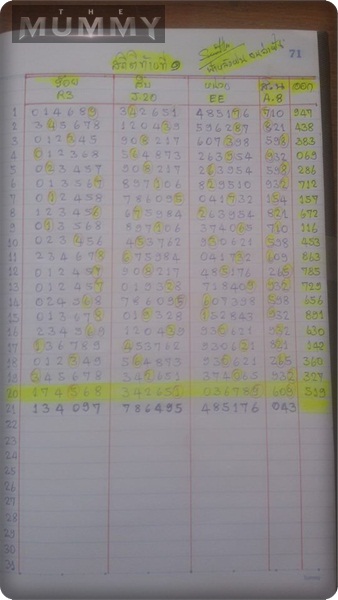 THE
MUMMY
สถิติท้ายที่
71
ร้อย สิบ หน่วย ออก
R3 J.20 EE A.8
1 014689 342651 485176 710 947
2 345678 120439 596287 821 438
3 012345 908217 607398 598 383
4 012368 564873 263954 932 069
5 023457 908217 263954 598 286
6 013567 897106 829510 932 712
7 012458 786095 041732 154 157
8 123456 675984 263954 821 672
9 013568 897106 374065 710 116
10 023456 453762 930621 598 453
11 234678 675984 041732 609 863
12 012457 908217 485176 265 785
13 012457 019328 718409 932 729
14 024568 786095 607398 598 656
15 013678 019328 152843 932 891
16 234569 120439 930621 932 630
17 136789 453762 930621 821 142
18 012349 564873 930621 265 360
19 345678 342651 374065 932 327
20 174568 342651 036785 609 519
21 134097 786495 485176 043
22
23
24
25
26
27
28
29
30
31